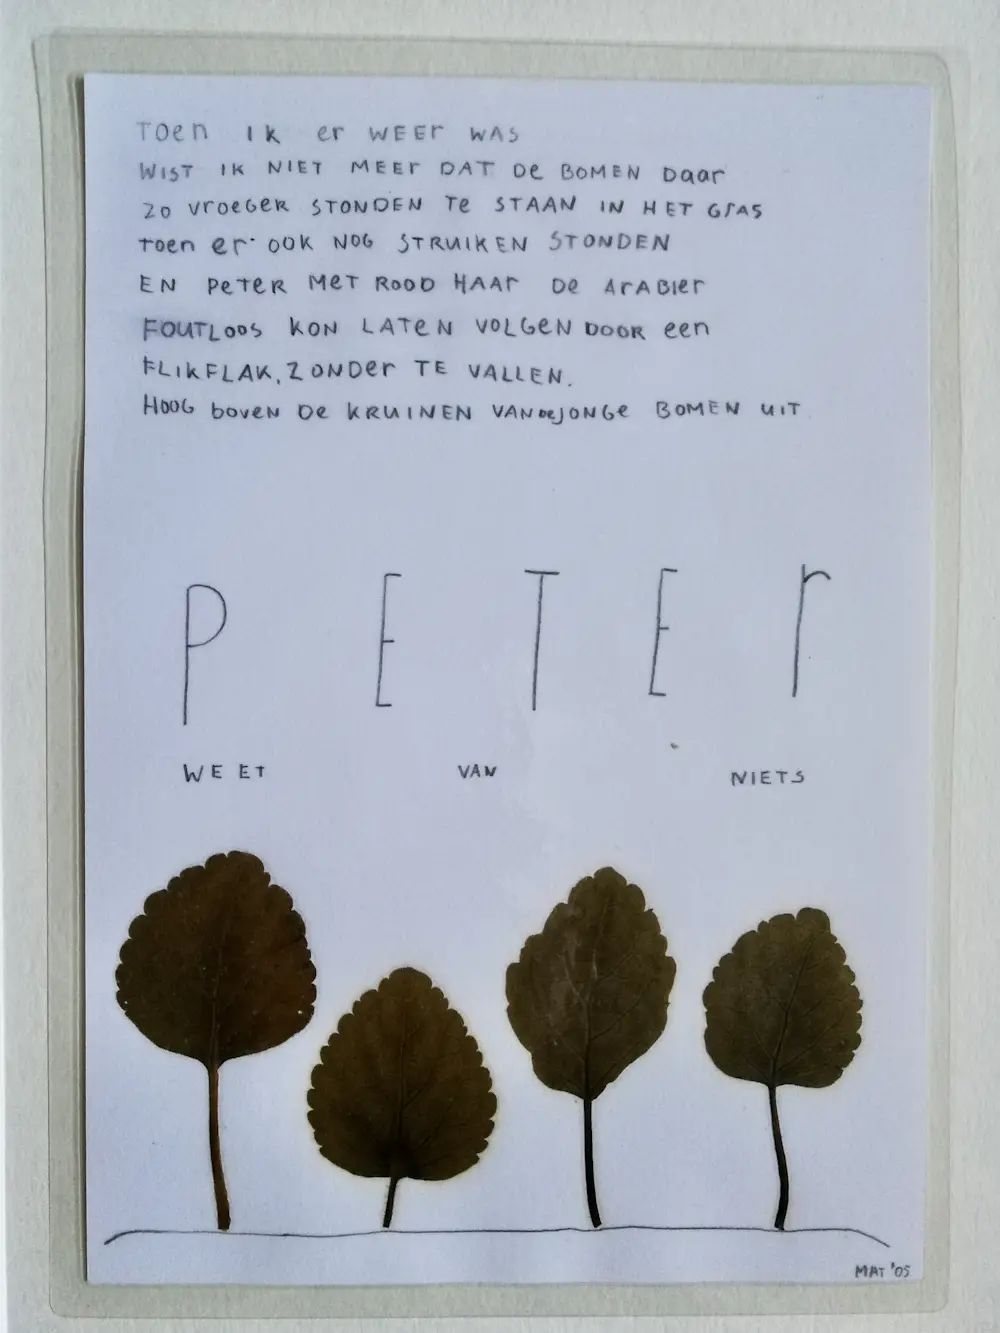 Toen IK er WEEr WAS
WIST IK NIET MEEr DAT De BOMEN Daar
Zo VroeGER STONDEN Te STAAN IN HET GrAS
Toen er OOK NOG STRUIKEN STONDEN
EN PeTER MeT ROOD HAAr De ArABIer
FOUTLOOS KON LATeN VOLGEN DOOR een
FLIKFLAK, ZONDEr TE VALLEN.
HOOG boVeN De KRUINEN VAN DeJONGe BOMEN UIT
PETEr
WEET VAN NIETS
MAT '05